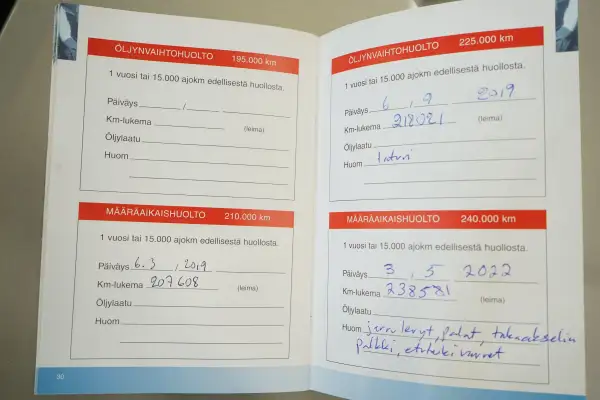 ÖLJYNVAIHTOHUOLTO 195.000 km
1 vuosi tai 15.000 ajokm edellisestä huollosta.
Päiväys /
Km-lukema (leima)
Öljylaatu
Huom
MÄÄRÄAIKAISHUOLTO 210.000 km
1 vuosi tai 15.000 ajokm edellisestä huollosta.
Päiväys 6.3 , 2019
Km-lukema 207608 (leima)
Öljylaatu
Huom
30
ÖLJYNVAIHTOHUOLTO 225.000 km
1 vuosi tai 15.000 ajokm edellisestä huollosta.
Päiväys 6 , 9 2019
Km-lukema 218021 (leima)
Öljylaatu
Huom
MÄÄRÄAIKAISHUOLTO 240.000 km
1 vuosi tai 15.000 ajokm edellisestä huollosta.
Päiväys 3 , 5 2022
Km-lukema 238581 (leima)
Öljylaatu
Huom jarrulevyt, palat, takaakselin
palkki,